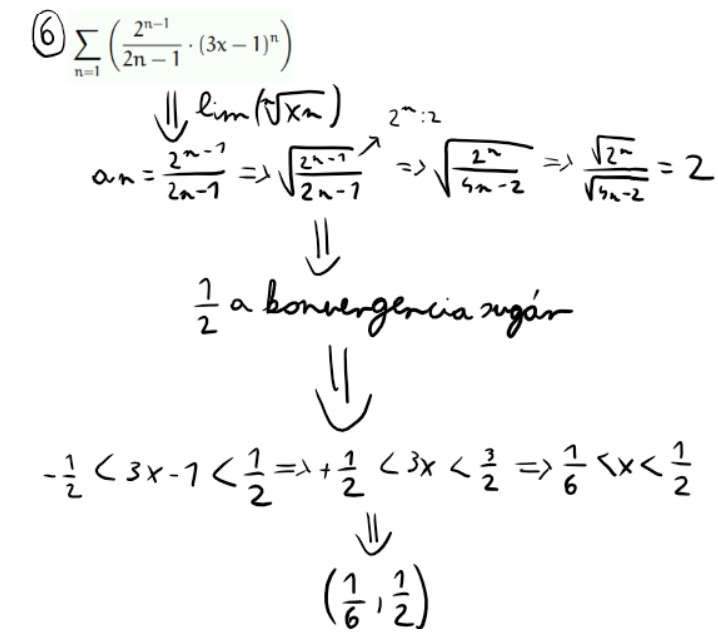 ⑥ ∑_{n=1} ( 2^{n−1} / (2n − 1) · (3x − 1)^n )
⇓ lim(ⁿ√xn)
an = 2^{n-1} / 2n-1 => √(2^{n-1} / 2n-1) ↗ 2^n:2 => √(2^n / 4n-2) => √2^n / √4n-2 = 2
⇓
1/2 a konvergencia sugár
⇓
-1/2 < 3x-1 < 1/2 => +1/2 < 3x < 3/2 => 1/6 < x < 1/2
⇓
(1/6, 1/2)